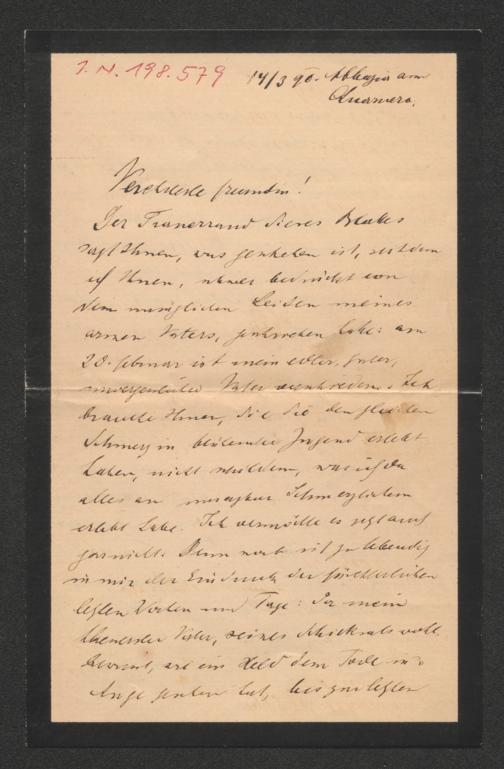 I. N. 198.579
14/3 90. Abbazia am
Quarnero.
Verehrteste Freundin!
Der Trauerrand dieses Blattes
sagt Ihnen, was geschehen ist, seitdem
ich Ihnen, schwer bedrückt von
dem unsäglichen Leiden meines
armen Vaters, geschrieben habe: am
28. Februar ist mein edler, guter,
unvergesslicher Vater verschieden. Ich
brauche Ihnen, die Sie den gleichen
Schmerz in blühender Jugend erlebt
haben, nicht schildern, was ich da
alles an unsagbar Schmerzlichem
erlebt habe. Ich vermöchte es jetzt auch
gar nicht. Denn noch ist zu lebendig
in mir der Eindruck der fürchterlichen
letzten Wochen und Tage: da mein
theuerster Vater, seines Schicksals wohl
bewusst, wie ein Held dem Tode ins
Auge gesehen hat, bis zum letzten